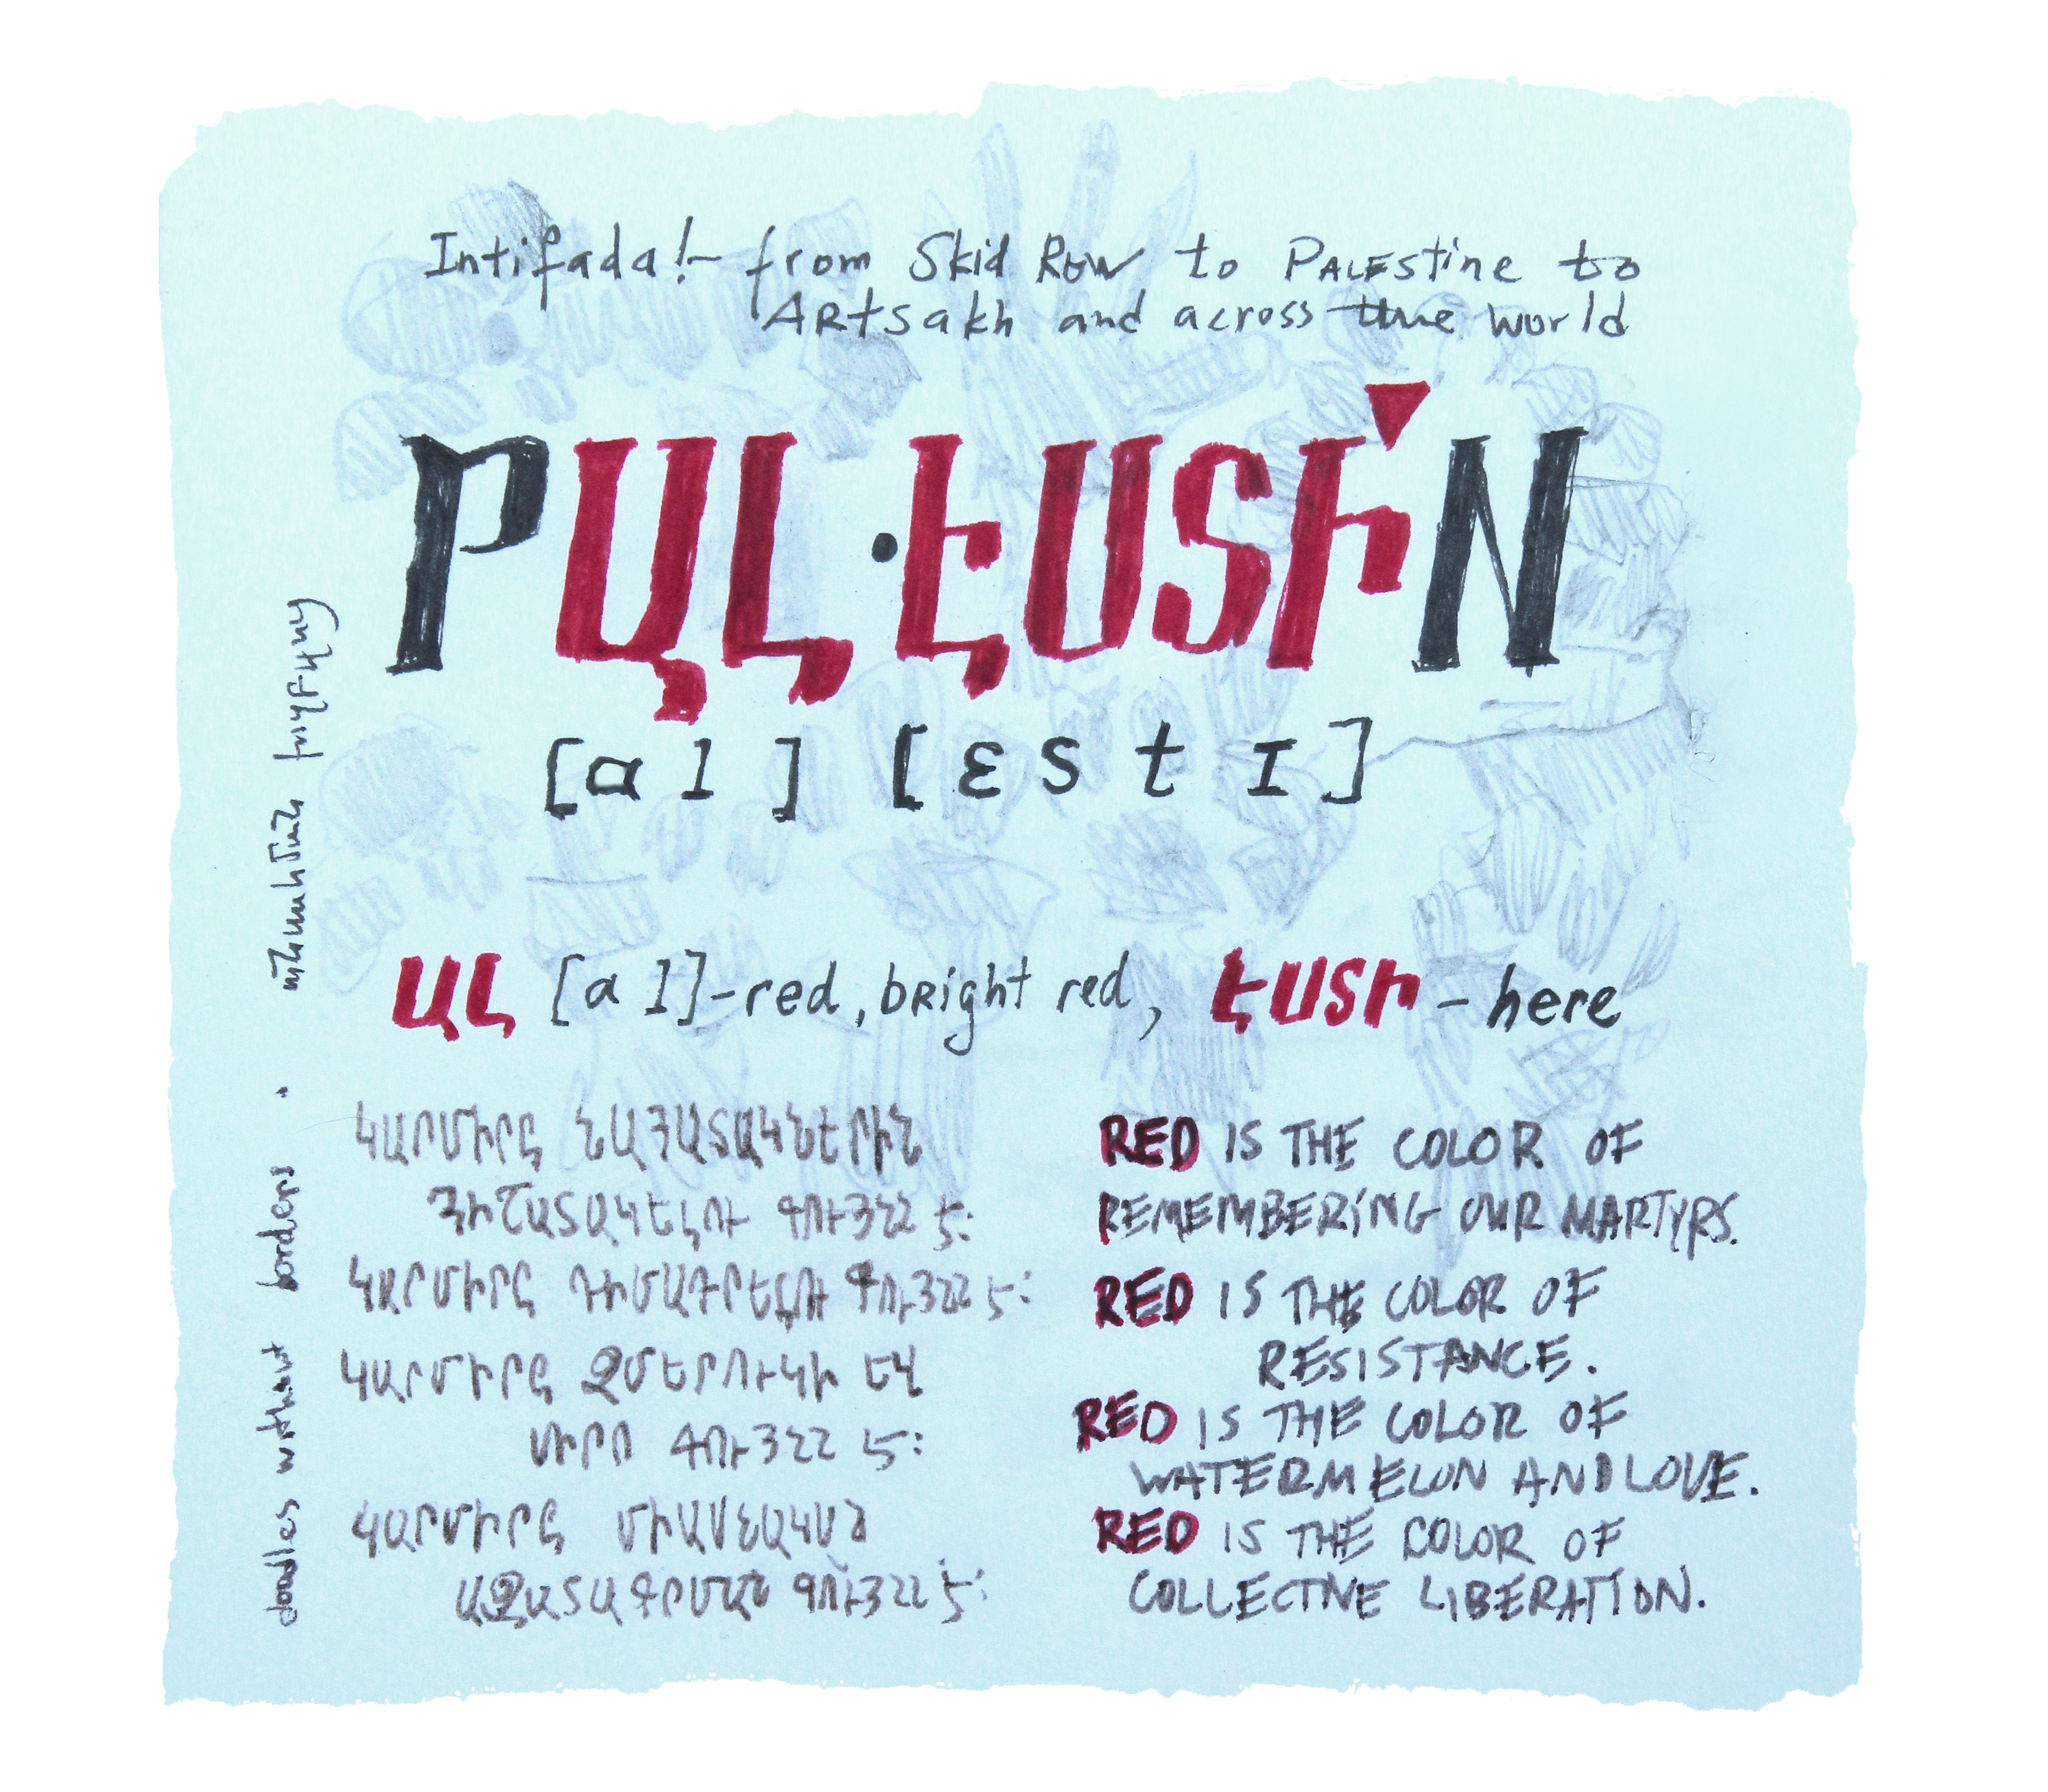 Intifada! – from Skid Row to PALEStine to
ARtsakh and across the world
PԱԼ·ԷՍՏԻN
[ɑ l] [ɛ s t ɪ]
ԱԼ [ɑ l] – red, bright red, ԷՍՏԻ – here
ԿԱՐՄԻՐԸ ՆԱՀԱՏԱԿՆԵՐԻՆ
ՅԻՇԱՏԱԿԵԼՈՒ ԳՈՒՅՆՆ Է։
ԿԱՐՄԻՐԸ ԴԻՄԱԴՐԵԼՈՒ ԳՈՒՅՆՆ Է։
ԿԱՐՄԻՐԸ ՁՄԵՐՈՒԿԻ ԵՎ
ՍԻՐՈ ԳՈՒՅՆՆ Է։
ԿԱՐՄԻՐԸ
ԱԶԱՏԱԳՐՄԱՆ ԳՈՒՅՆՆ Է։
RED IS THE COLOR OF
REMEMBERING OUR MARTYRS.
RED IS THE COLOR OF
RESISTANCE.
RED IS THE COLOR OF
WATERMELON AND LOVE.
RED IS THE COLOR OF
COLLECTIVE LIBERATION.
doodles without borders •